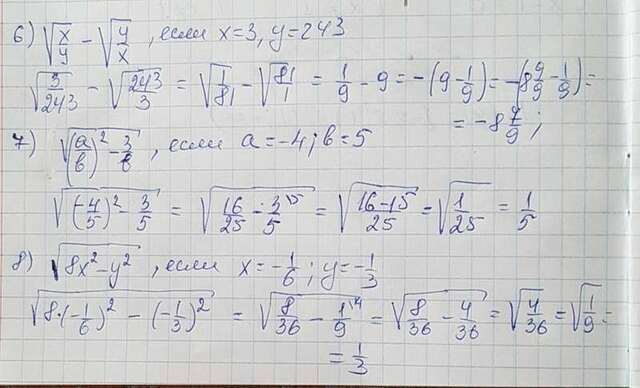 6) √(x/y) − √(y/x), если x=3, y=243
√(3/243) − √(243/3) = √(1/81) − √(81/1) = 1/9 − 9 = −(9 − 1/9) = −(8 9/9 − 1/9) =
= −8 8/9;
7) √((a/b)² − 3/b), если a=−4; b=5
√((−4/5)² − 3/5) = √(16/25 − 3/5 \5) = √((16−15)/25) = √(1/25) = 1/5
8) √(8x²−y²), если x=−1/6; y=−1/3
√(8·(−1/6)² − (−1/3)²) = √(8/36 − 1/9 \4) = √(8/36 − 4/36) = √(4/36) = √(1/9) =
= 1/3